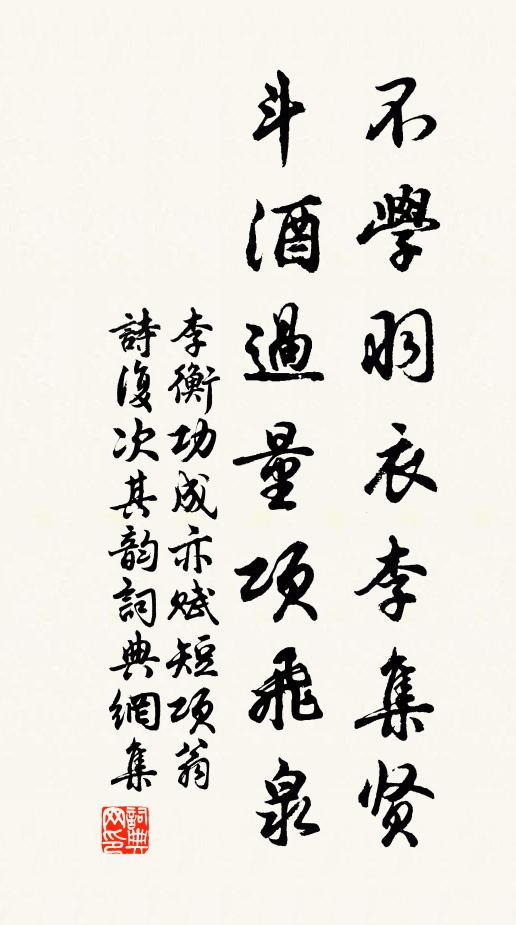 不學羽衣李集贤
斗酒過量項飛泉
李衡功成亦赋短项翁
詩復次其韵詞典網集
詞典网印